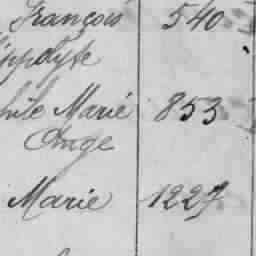 François 540
ippolyte
hile Marie 853
Ange
Marie 1227